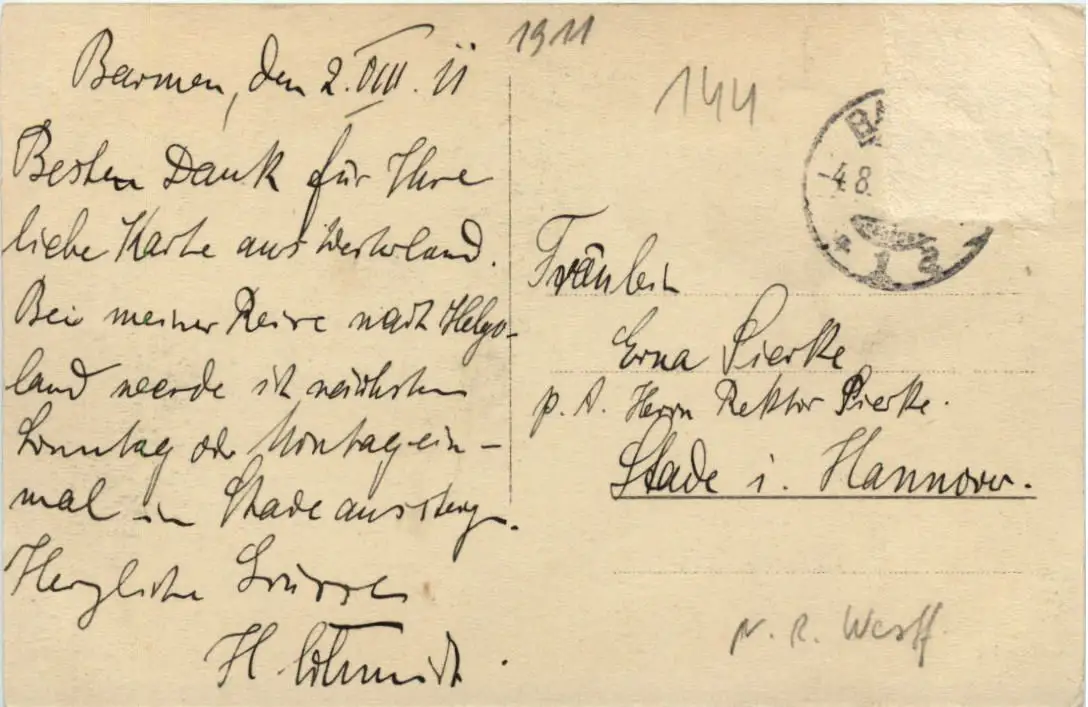 1911
144
Barmen, den 2. VIII. 11
Besten Dank für Ihre
liebe Karte aus Westerland.
Bei meiner Reise nach Helgo-
land werde ich nächsten
Sonntag oder Montag ein-
mal in Stade aussteigen.
Herzliche Grüsse
H. Schmidt.
BA
-4.8.
* 1 2
Fräulein
Erna Pierke
p. A. Herrn Rektor Pierke.
Stade i. Hannover.